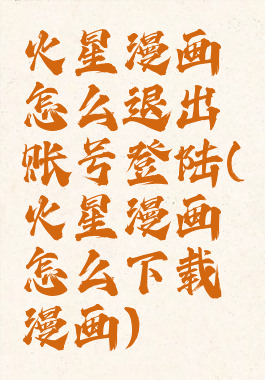 火星漫画
怎么退出
账号登陆(
火星漫画
怎么下载
漫画)